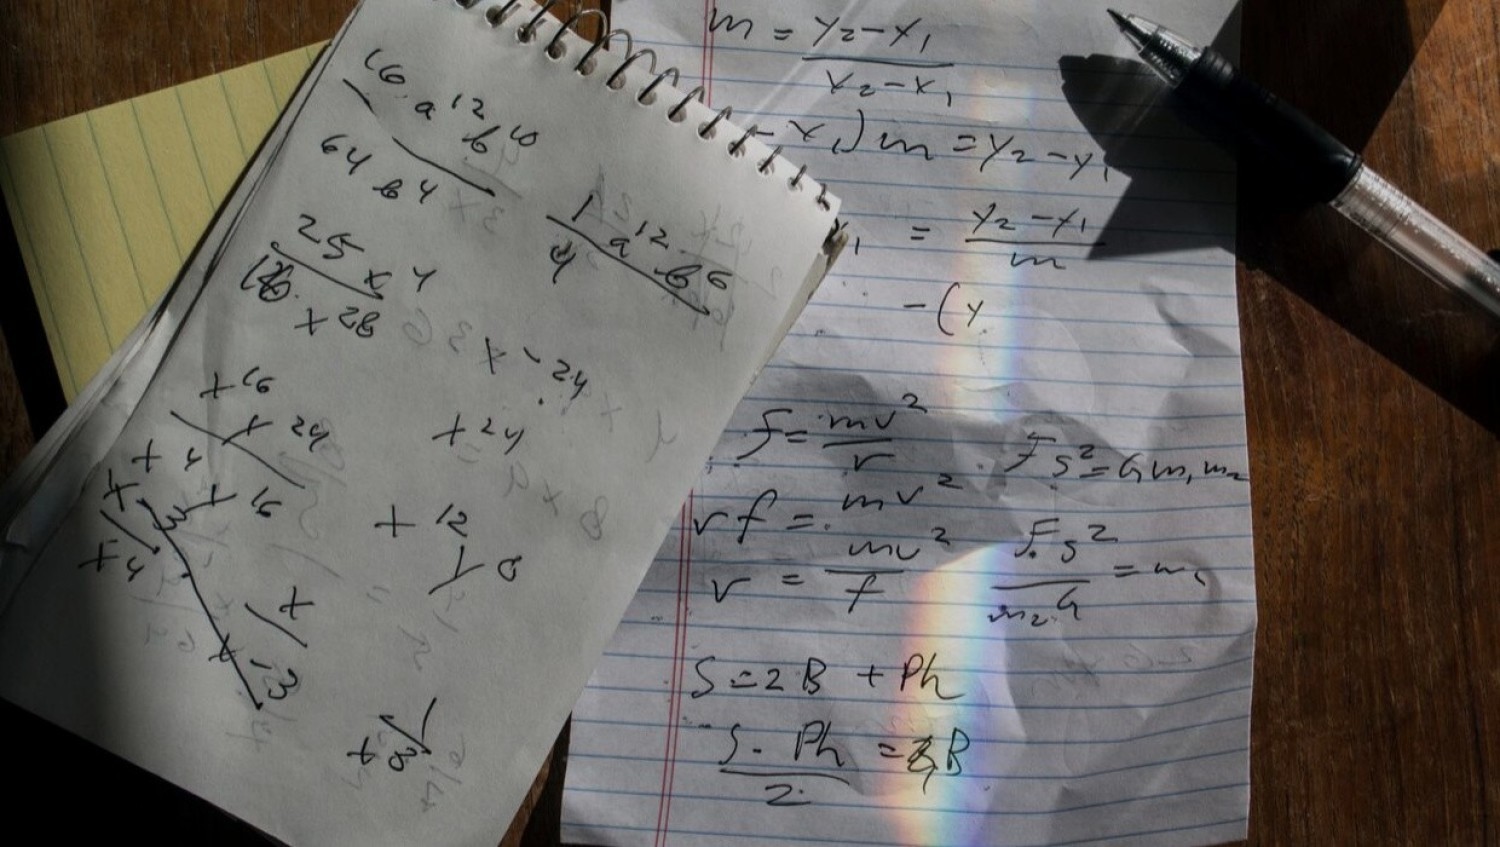 16 a^12 b^10
64 b^4
1 a^12 b^6
4
25 x^4
x^28
x^-24
x^16
x^24
x^24
x^4
x^16
x^12
x^4
y^8
x
x^-3
1
x^3
m = y2 - y1
x2 - x1
- x1) m = y2 - y1
x1 = y2 - y1
m
- (y
f = mv^2
r
Fs^2 = Gm1m2
rf = mv^2
r = mv^2
f
Fs^2 = m1
m2G
S = 2B + Ph
S - Ph = B
2